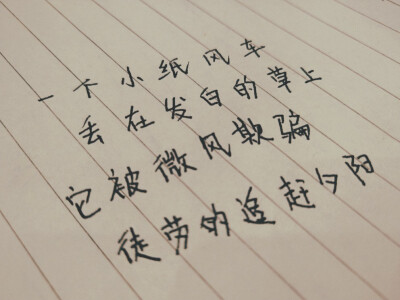 一下小纸风车
丢在发白的草上
它被微风欺骗
徒劳的追赶夕阳